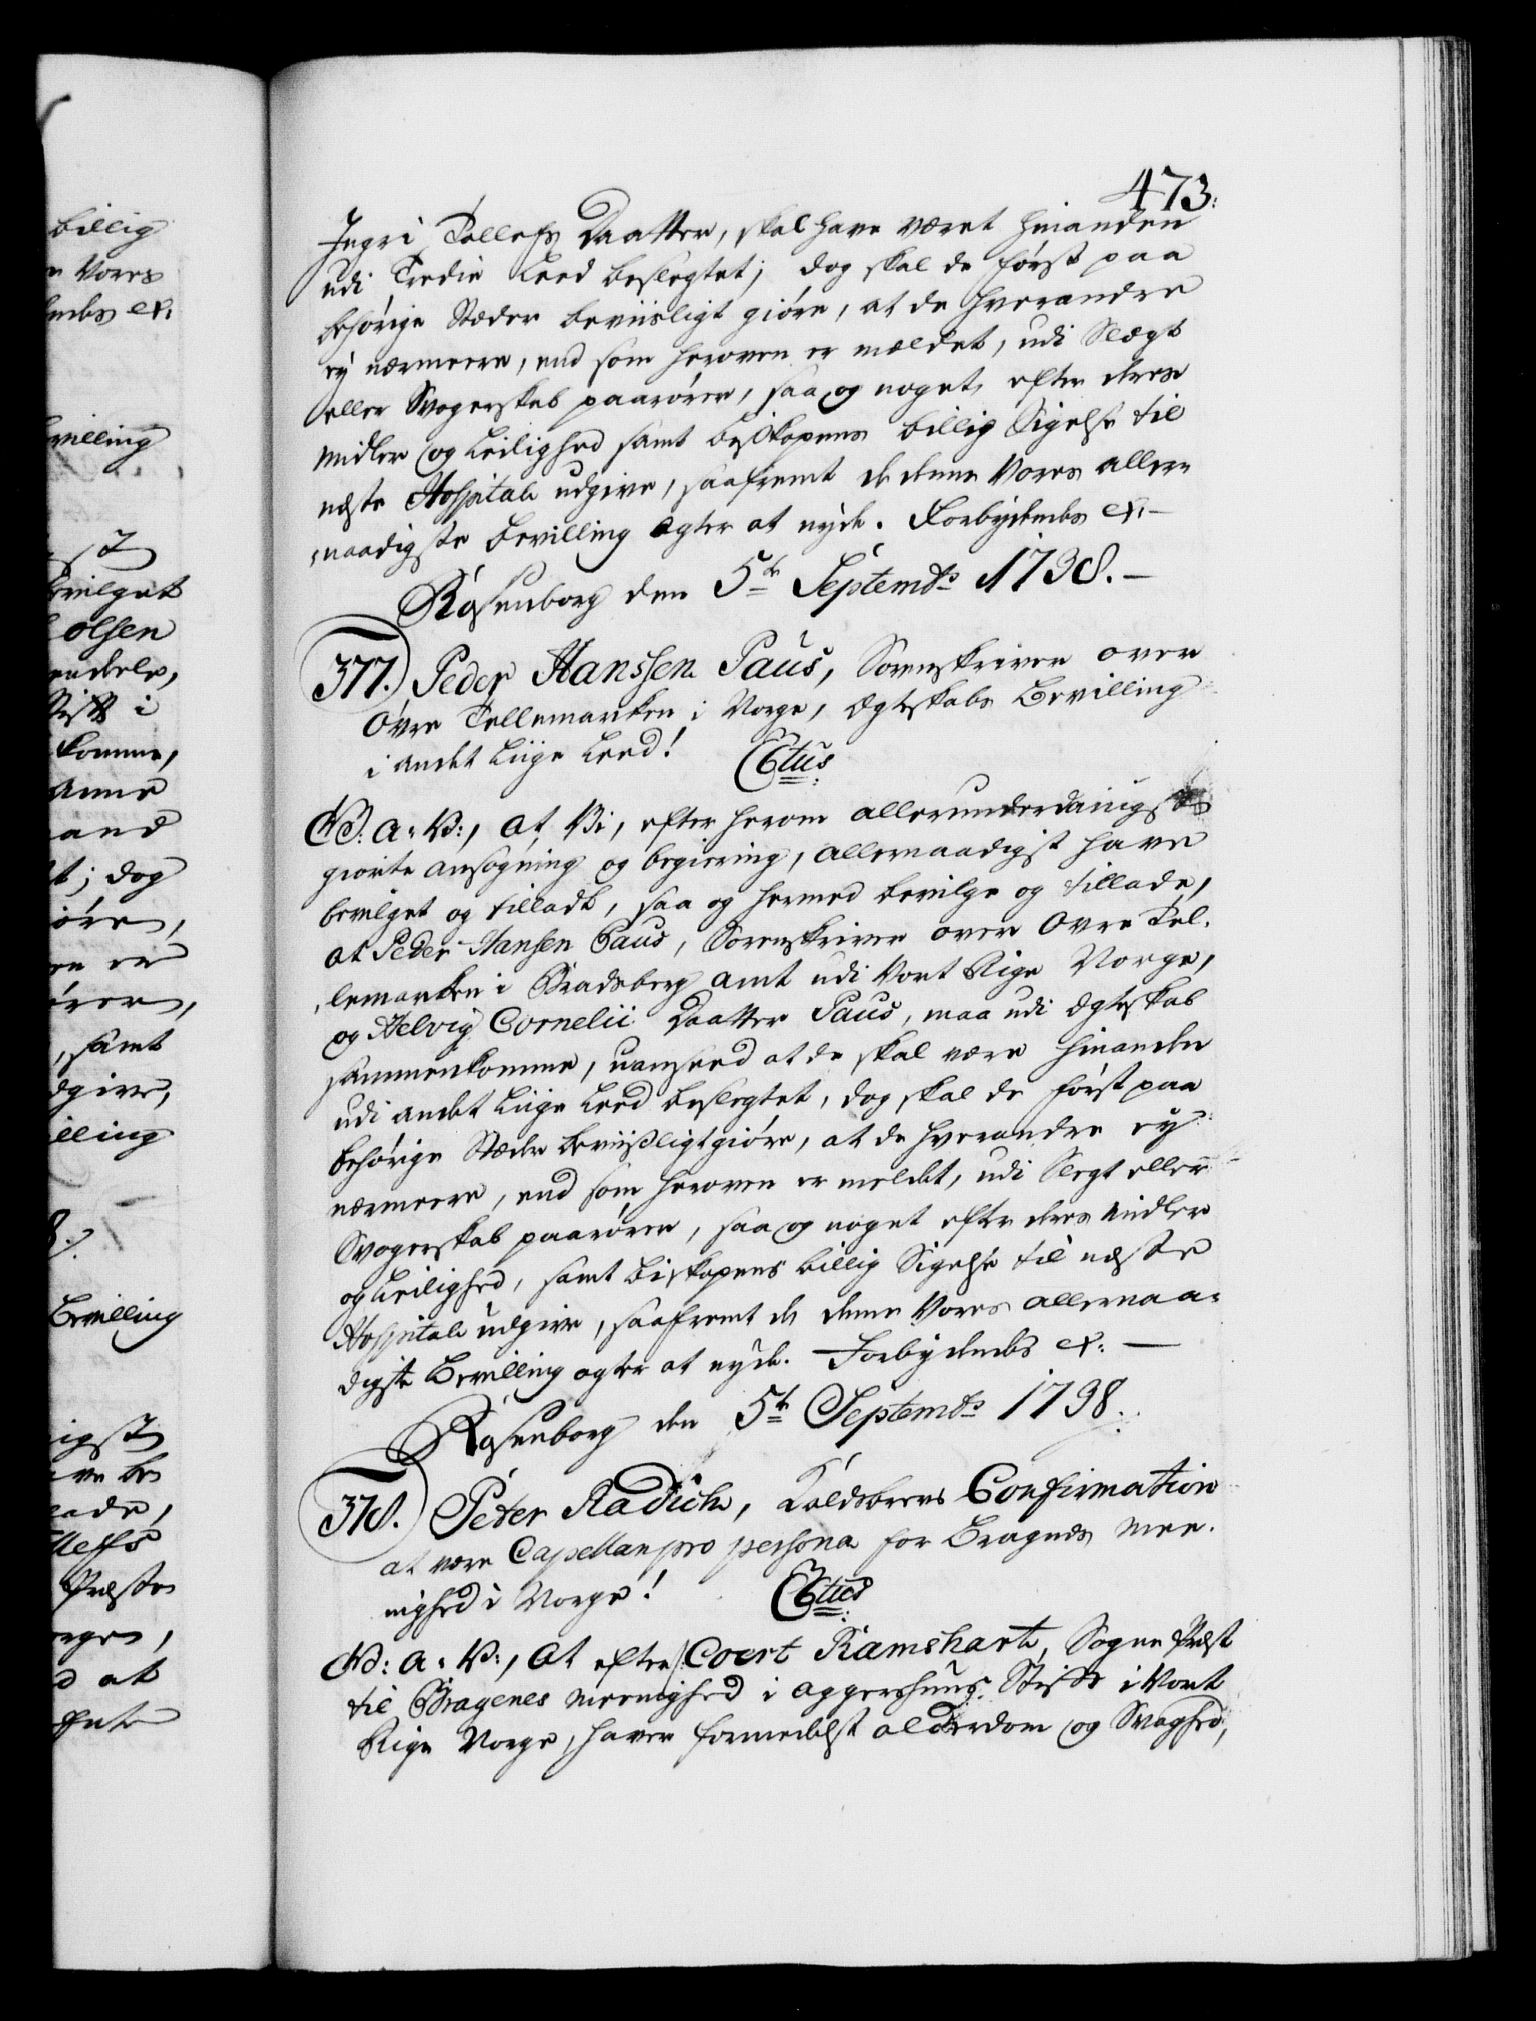 473.
Ingri Tollefs Daatter, skal have været hinanden
udi Tredie Leed beslegtet; dog skal de først paa
behørige Stæder beviisligt giøre, at de hverandre
ey nærmere, end som heroven er mældet, udi Slægt
eller Svogerskab paarører, saa og noget, efter deres
midler og Leilighed samt Biskopens billig Sigelse til
neste Hospitale udgive, saafremt de denne Vores aller-
naadigste Bevilling agter at nyde. Forbydendes &.-
Rosenborg den 5te Septembr 1738.-
377. Peder Hanssen Paus, Sorenskriver over
Øvre Tellemarken i Norge, Ægteskabs Bevilling
i andet Liige Leed! C6tus
G: A: V:, at Vi, efter herom allerunderdanigst
giorte ansøgning og begiering, allernaadigst have
bevilget og tilladt, saa og hermed bevilge og tillade,
at Peder Hansen Paus, Sorenskriver over Øvre Tel-
lemarken i Bradsberg Amt udi Vort Rige Norge,
og Helvig Cornelii Daatter Paus, maa udi Ægteskab
sammenkomme, uanseed at de skal være hinanden
udi andet Liige Leed beslegtet, dog skal de først paa
behørige Stæder beviißligtgiøre, at de hverandre ey
nærmere, end som heroven er meldet, udi Slegt eller
Svogerskab paarører, saa og noget efter deres Midler
og Leilighed, samt Biskopens billig Sigelse til neste
Hospitale udgive, saafremt de denne Vores allernaa-
digste Bevilling agter at nyde. Forbydendes &.-
Rosenborg den 5te Septembr 1738.
378. Peter Radich, Kaldsbrevs Confirmation
at være Capellan pro persona for Bragnes Mee-
nighed i Norge! C6tus
G: A: V:, At efter Coert Ramshart, Sogne Præst
til Bragenes Meenighed i Aggershuus Stift i Vort
Rige Norge, haver formedelst alderdom og Svaghed,